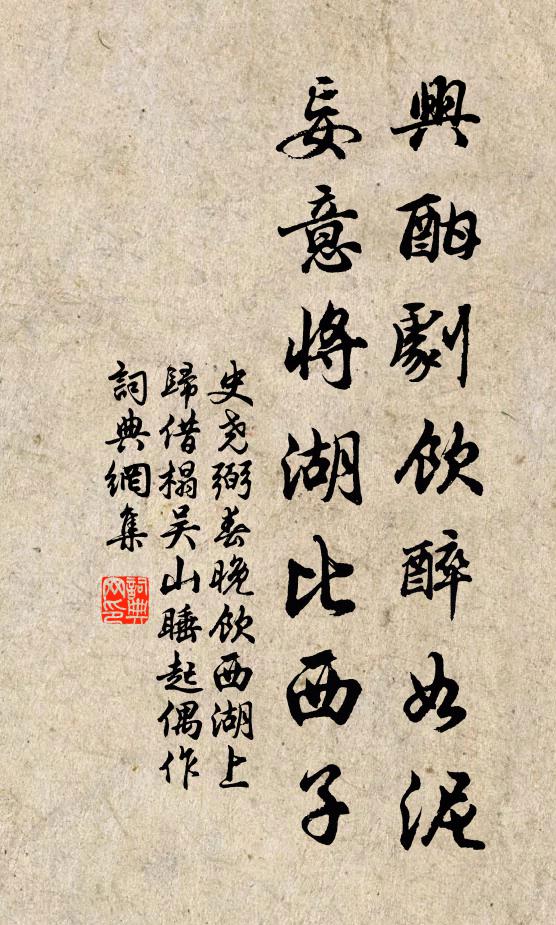 興酣劇飲醉如泥
妄意將湖比西子
史堯弼春晚飲西湖上
歸借榻吴山睡起偶作
詞典網集
詞典網印